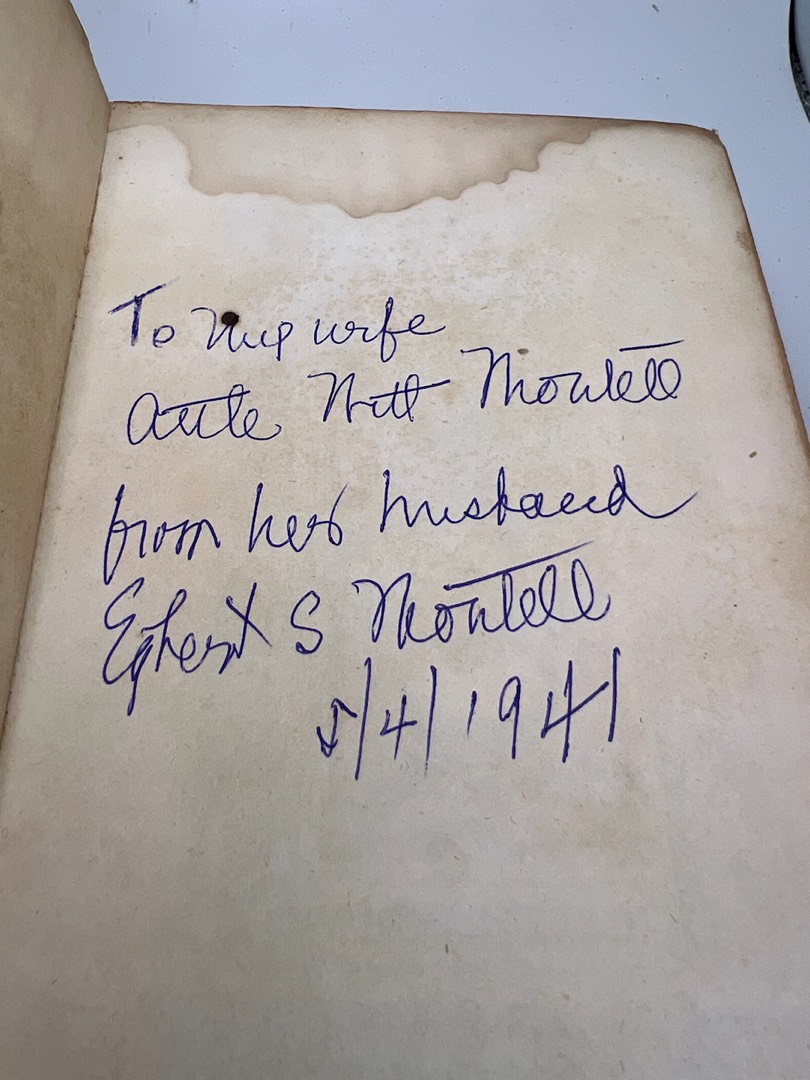 To my wife
Witt Montell
from her husband
Egbert S Montell
5/4/1941